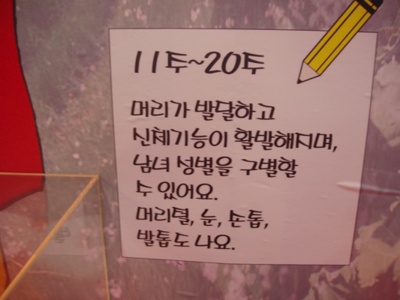 11주~20주
머리가 발달하고
신체기능이 활발해지며,
남녀 성별을 구별할
수 있어요.
머리털, 눈, 손톱,
발톱도 나요.